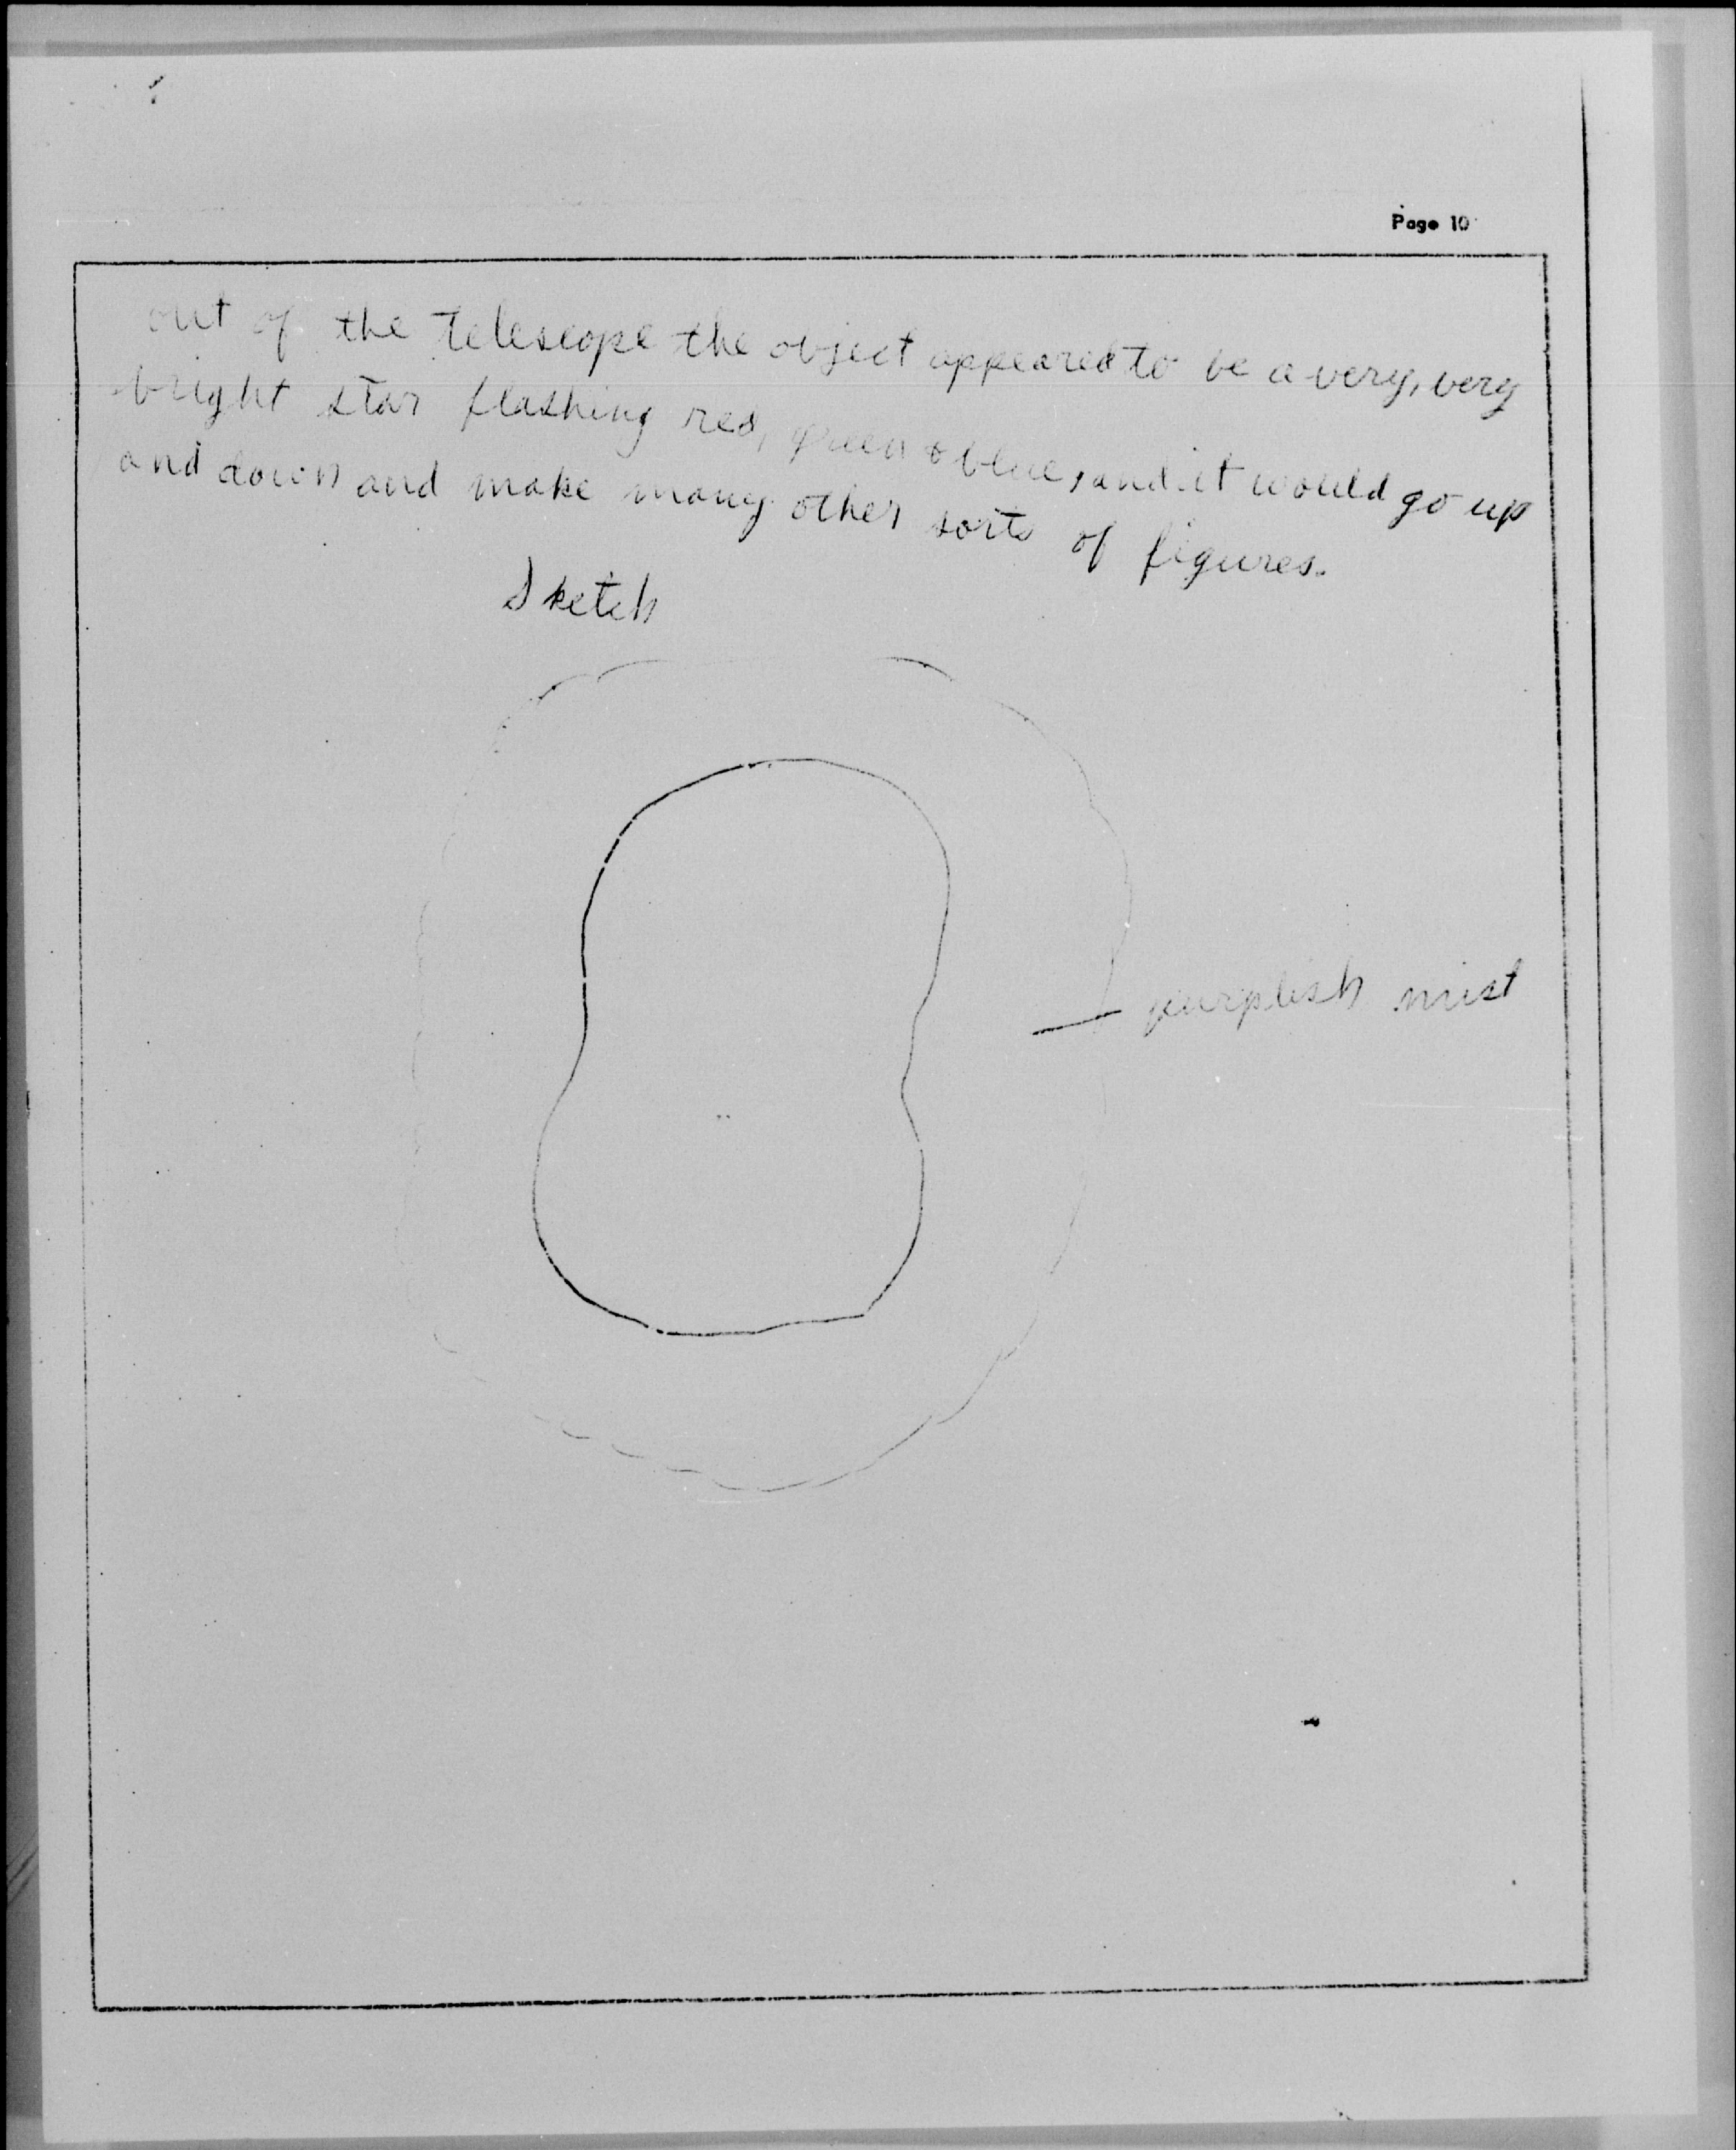 Page 10
out of the telescope the object appeared to be a very, very
bright star flashing red, green & blue, and it would go up
and down and make many other sorts of figures.
Sketch
purplish mist